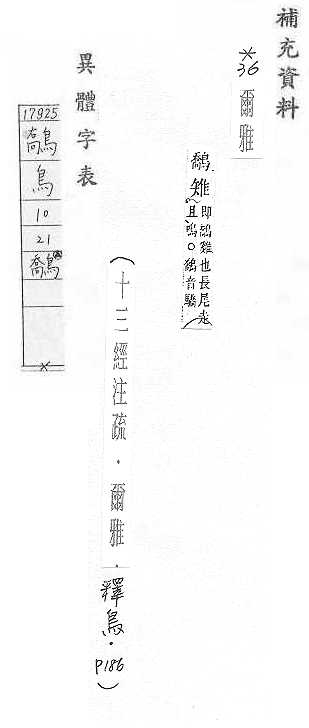 補充資料
*36 爾雅
鷮雉
即鷮雞也長尾走
且鳴。鷮音驕
(十三經注疏．爾雅．釋鳥．P186)
異體字表
17925
鳥
10
21
鷮